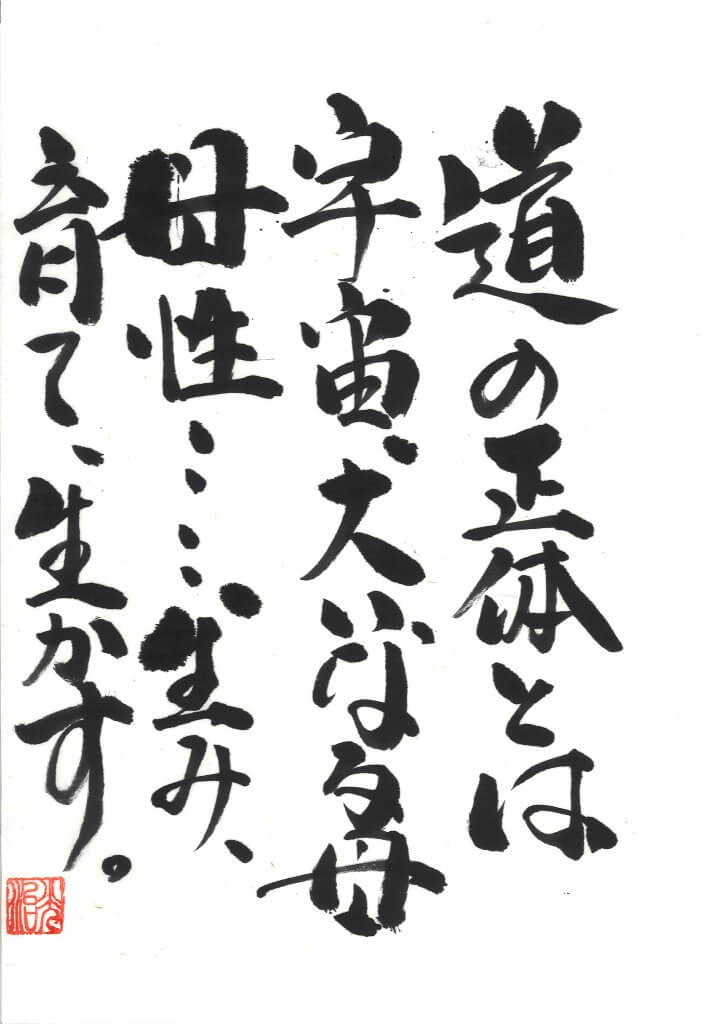 道の正体とは
宇宙、大いなる母
母性……生み、
育て、生かす。